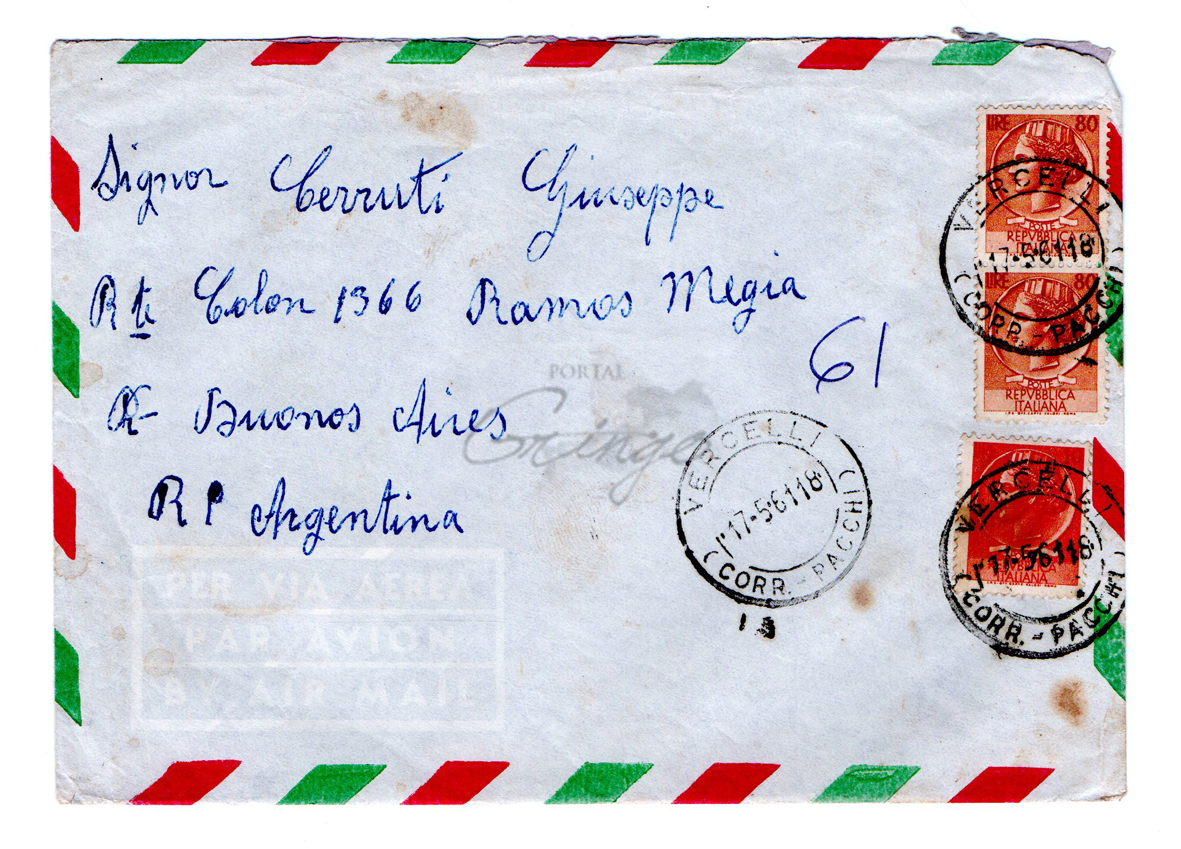 Signor Cerruti Giuseppe
Rte Colon 1366 Ramos Megia
Buonos Aires
RP Argentina
61
PER VIA AEREA
PAR AVION
BY AIR MAIL
PORTAL
Gringo
LIRE 80
POSTE
REPVBBLICA
ITALIANA
LIRE 80
POSTE
REPVBBLICA
ITALIANA
REPVBBLICA
ITALIANA
VERCELLI
17-5-61 18
(CORR.-PACCHI)
VERCELLI
17-5-61 18
(CORR.-PACCHI)
VERCELLI
17-5-61 18
(CORR.-PACCHI)